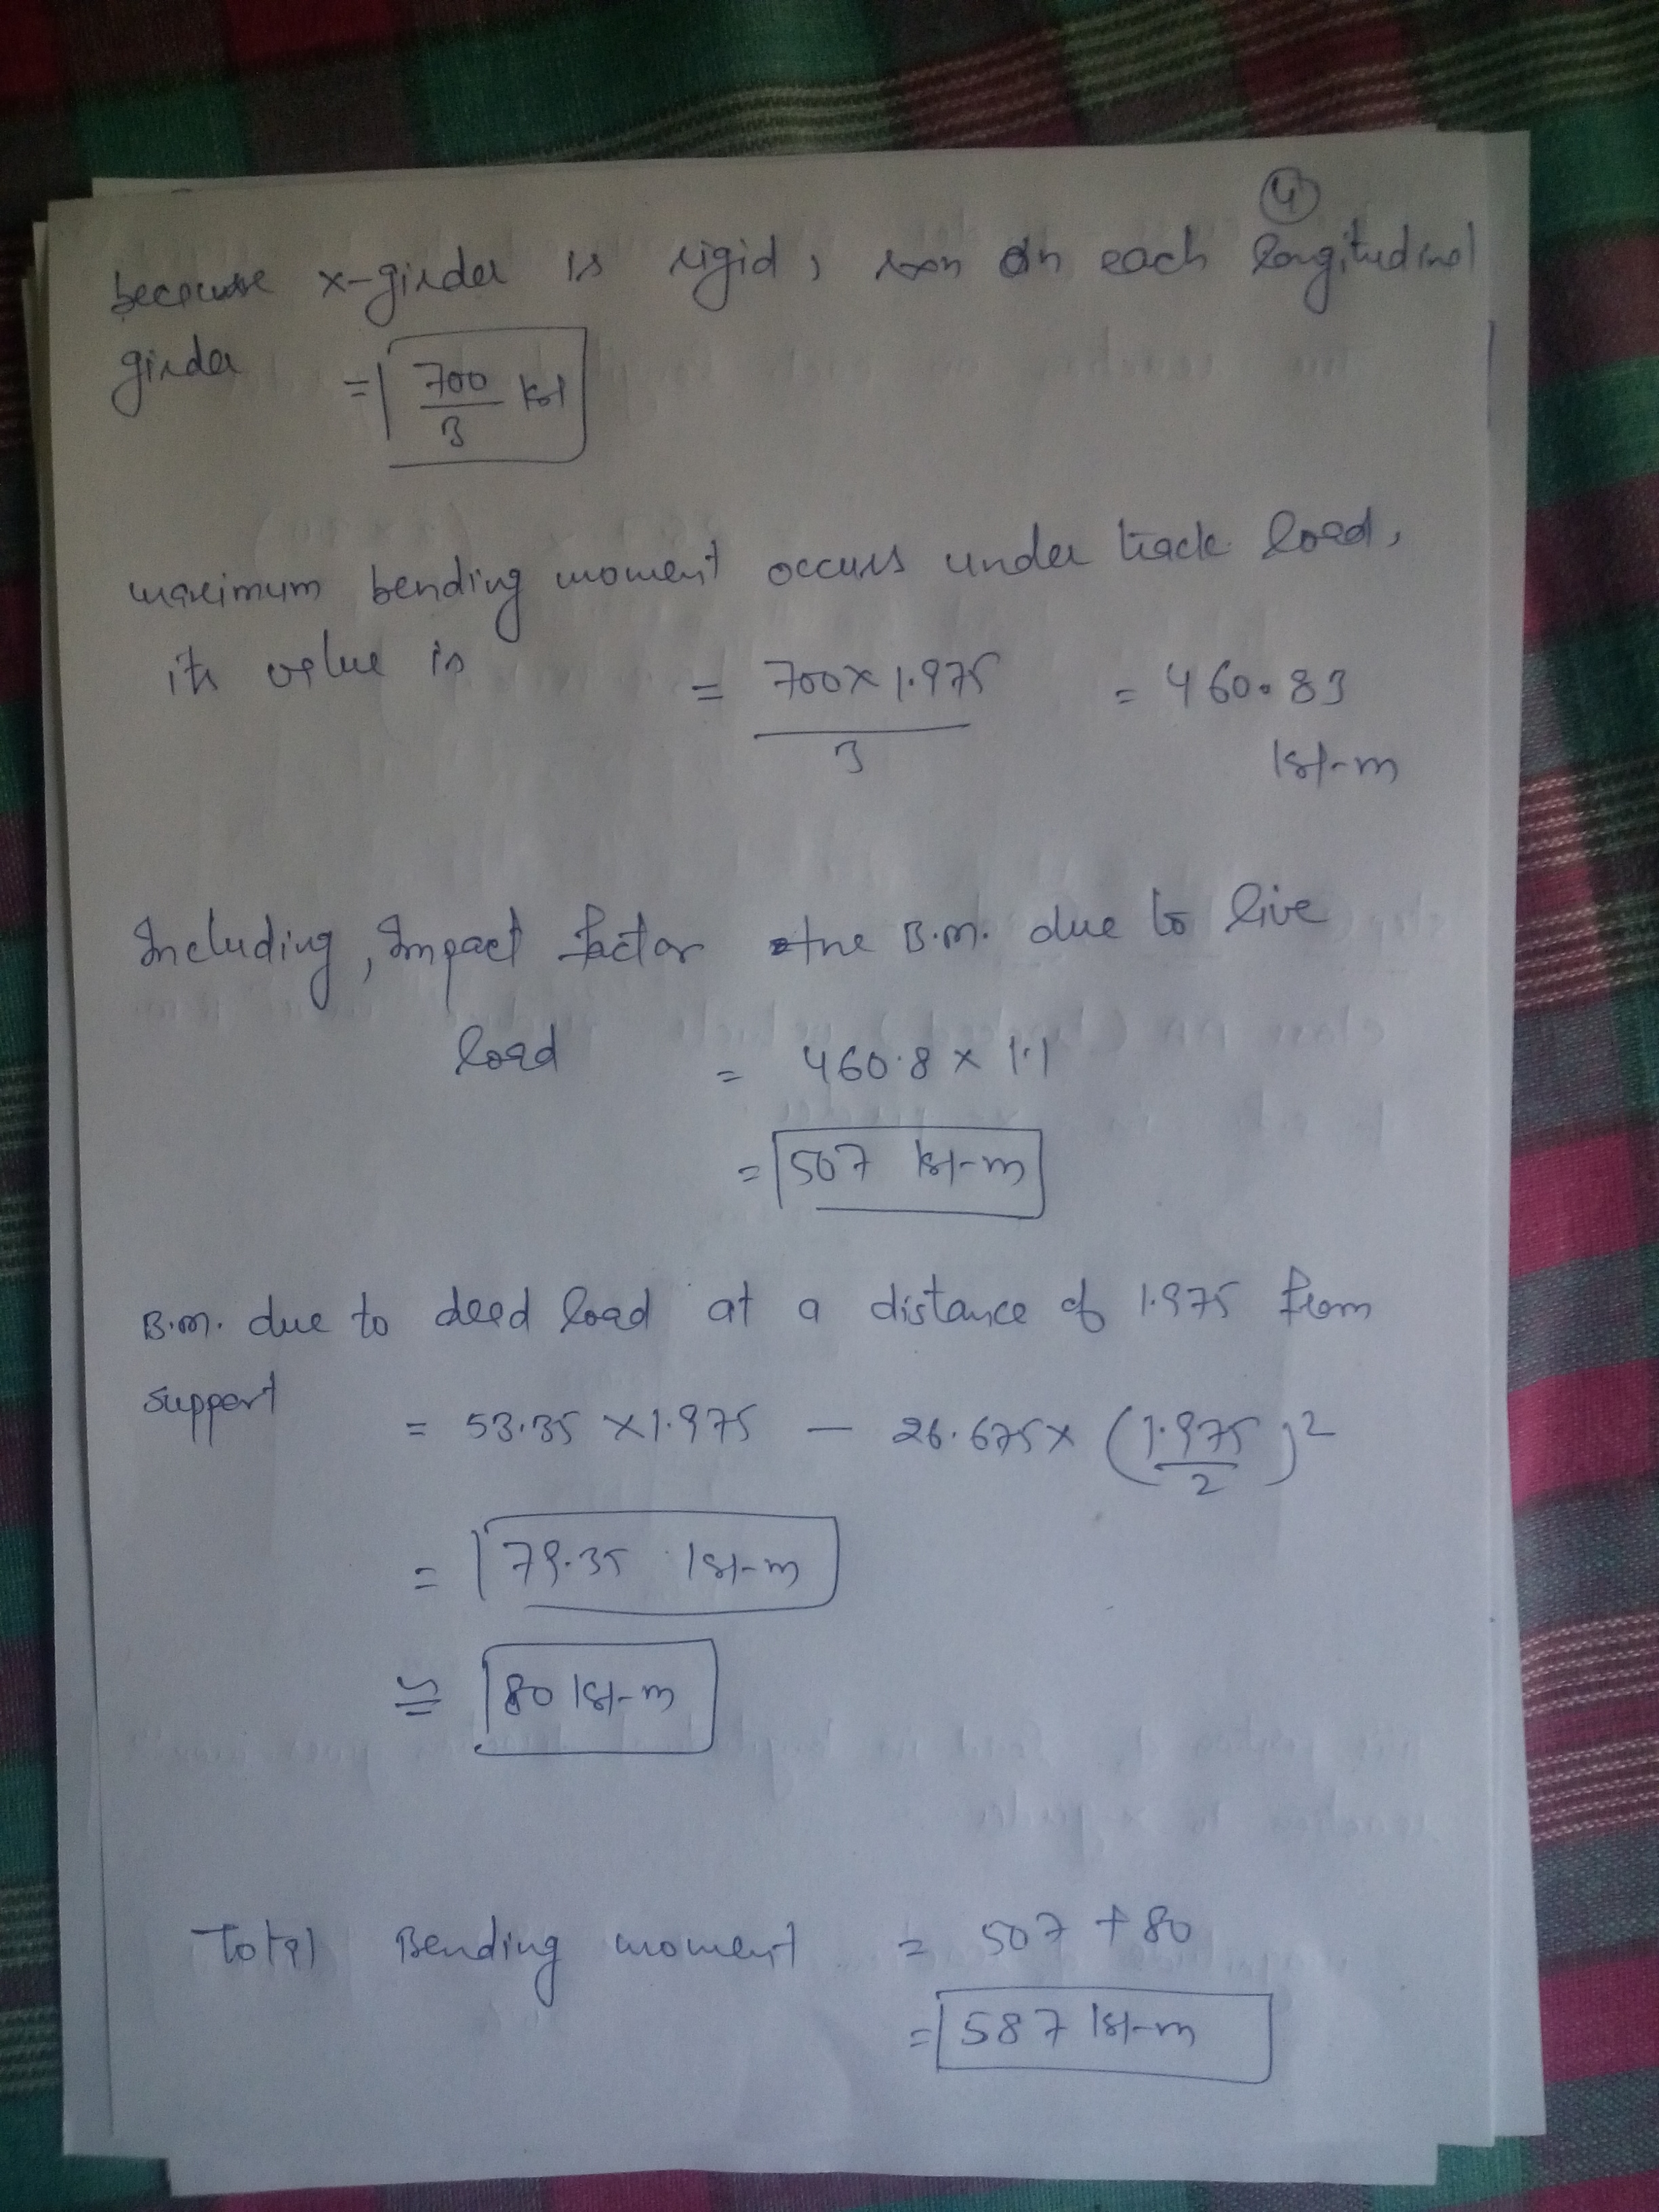 4
because x-girder is rigid, rxn on each longitudinal
girder = 700/3 kN
maximum bending moment occurs under track load,
its value is = 700 x 1.975 / 3 = 460.83
kN-m
Including, Impact factor the B.M. due to live
load = 460.8 x 1.1
= 507 kN-m
B.M. due to dead load at a distance of 1.975 from
support = 53.35 x 1.975 - 26.675 x (1.975/2)2
= 79.35 kN-m
≅ 80 kN-m
Total Bending moment = 507 + 80
= 587 kN-m